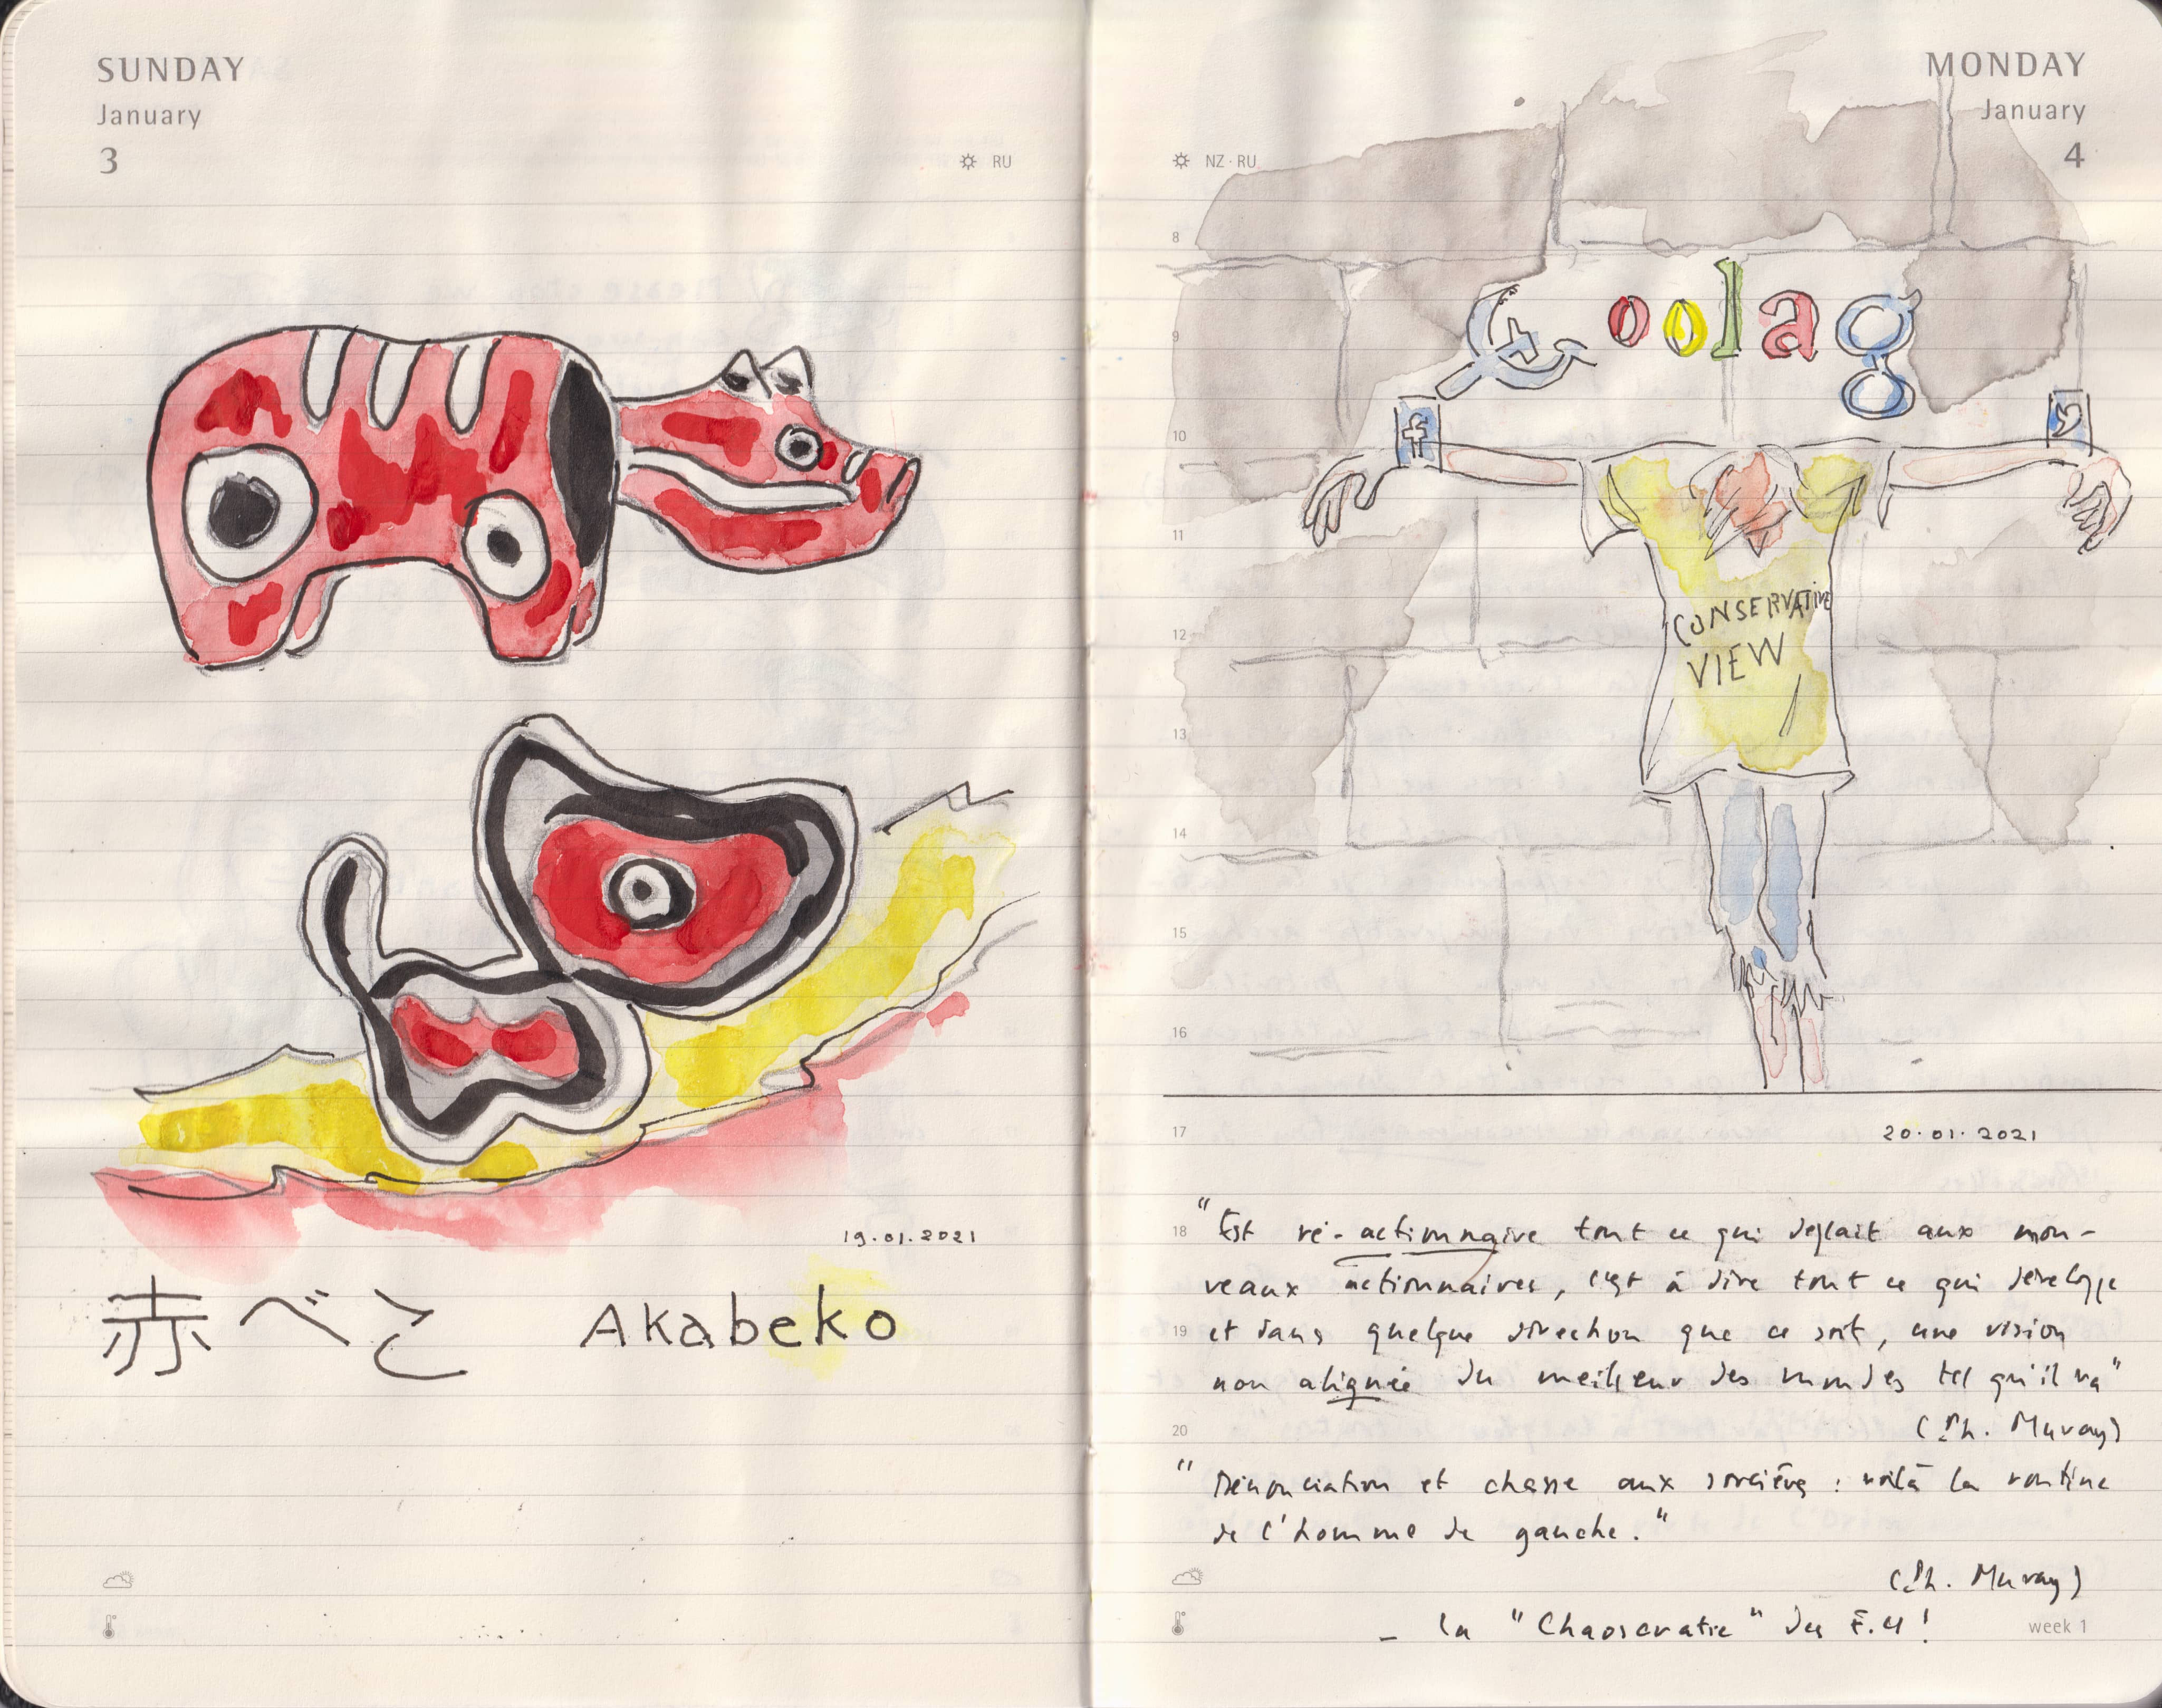 SUNDAY
January
3
RU
赤べこ Akabeko
19.01.2021
MONDAY
January
4
NZ · RU
8
9
10
11
12
13
14
15
16
17
18
19
20
oolag
f
CONSERVATIVE
VIEW
20.01.2021
"Est ré-actionnaire tout ce qui déplait aux nou-
veaux actionnaires, c'est à dire tout ce qui développe
et dans quelque direction que ce soit, une vision
non alignée du meilleur des mondes tel qu'il va"
(Ph. Muray)
"Dénonciation et chasse aux sorcières : voilà la routine
de l'homme de gauche."
(Ph. Muray)
_ la "Chaoscratie" des E.U !
week 1